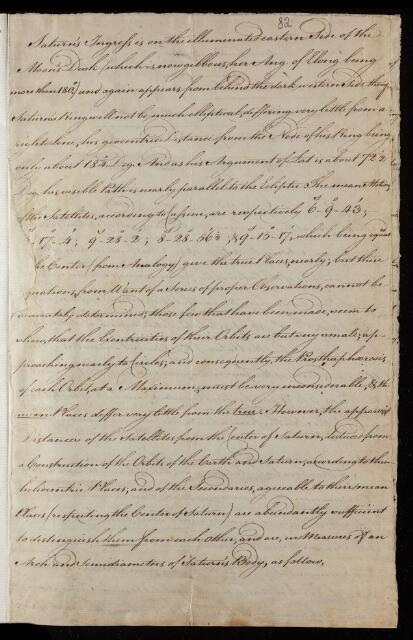 82
Saturn's Ingress is on the illuminated eastern Side of the
Moon's Dusk (which is now gibbous, her Ang. of Elong. being
more than 180,) and again appears from behind the dark western Side thereof.
Saturn's Ring will not be much elliptical, differing very little from a
right Line, his geocentric Distance from the Node of his Ring being
only about 18½ Deg. And as his Argument of Lat. is about 72½
Deg. his visible Path is nearly parallel to the Ecliptic. The mean
of his Satellites, according to Cassini, are respectively 6ˢ-9°-43′;
-17-4; 9-23-2; 8-28-56½; & 9-15-17, which being equat
the Center (from Analogy) give the true Places, nearly; but these
quations, from Want of a Series of proper Observations, cannot be
accurately determined; those few that have been made, seem to
shew, that the Excentricities of their Orbits are but very small, ap-
proaching nearly to Circles; and consequently, the Prosthaphæresis
of each Orbit, at a Maximum, must be very inconsiderable, & the
mean Places differ very little from the true. However, the apparent
Distances of the Satellites from the Center of Saturn, deduced from
a Construction of the Orbits of the Earth and Saturn, according to their
heliocentric Places, and of the Secondaries, agreeable to their mean
Places (respecting the Center of Saturn) are abundantly sufficient
to distinguish them from each other, and are, in Measures of an
Arch and Semidiameters of Saturn's Body, as follow,